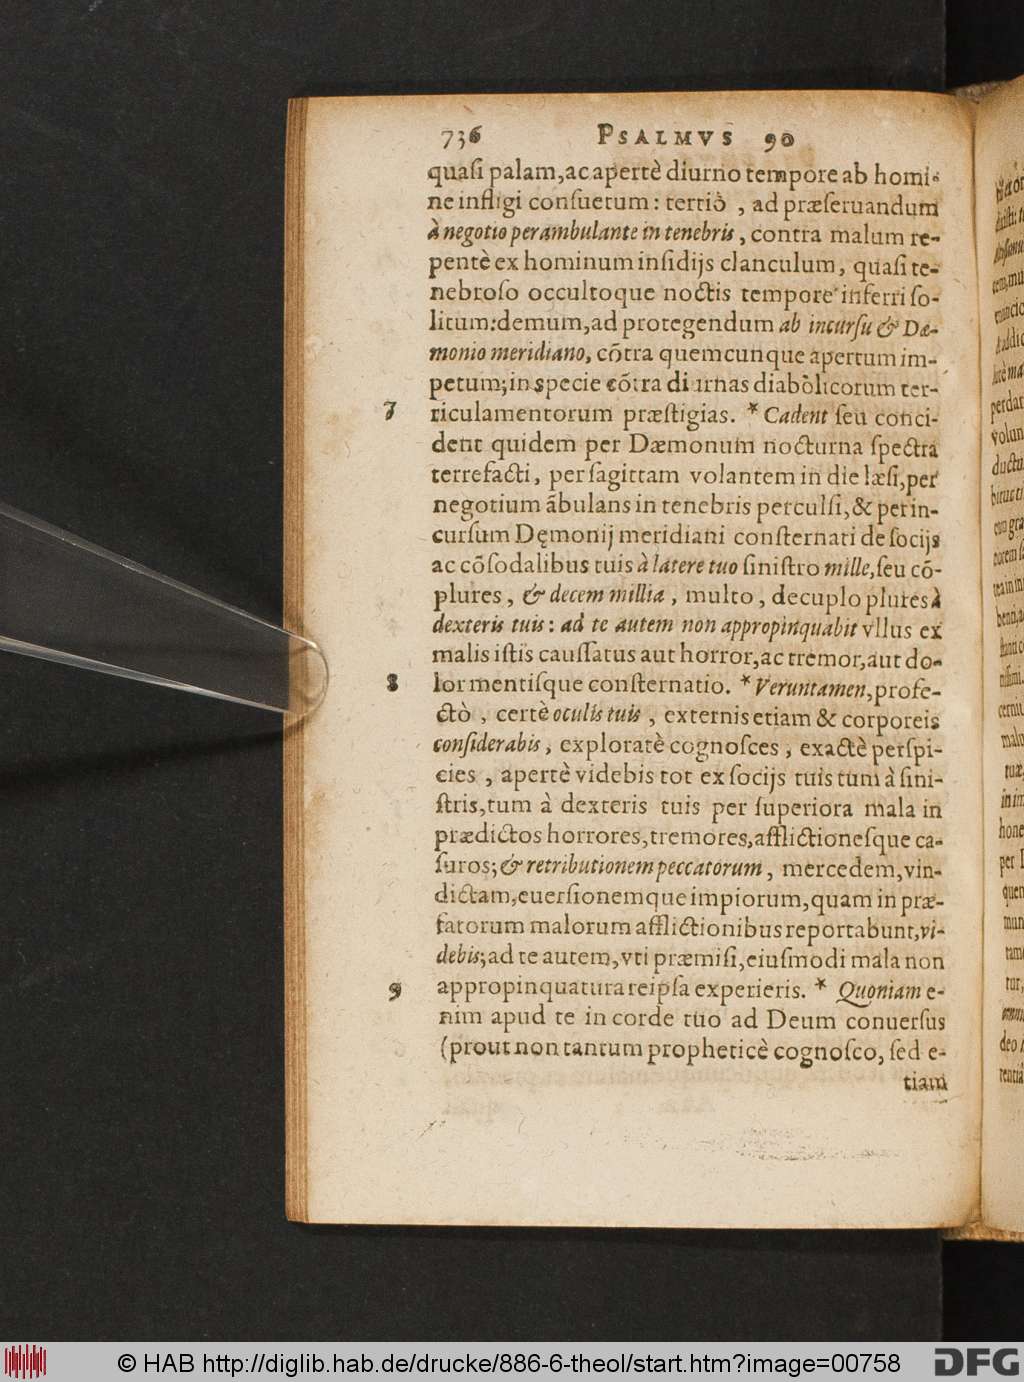 736 PSALMVS 90
quaſi palam, ac apertè diurno tempore ab homi-
ne infligi conſuetum: tertiò , ad præſeruandum
à negotio perambulante in tenebris, contra malum re-
pentè ex hominum inſidijs clanculum, quaſi te-
nebroſo occultoque noctis tempore inferri ſo-
litum: demum, ad protegendum ab incurſu & Dæ-
monio meridiano, cōtra quemcunque apertum im-
petum; in specie cōtra diurnas diabòlicorum ter-
7 riculamentorum præſtigias. * Cadent ſeu conci-
dent quidem per Dæmonum nocturna ſpectra
terrefacti, per ſagittam volantem in die læſi, per
negotium ãbulans in tenebris perculſi, & per in-
curſum Dęmonij meridiani conſternati de ſocijs
ac cōſodalibus tuis à latere tuo ſiniſtro mille, ſeu cō-
plures, & decem millia, multo, decuplo plures à
dexteris tuis: ad te autem non appropinquabit vllus ex
malis iſtis cauſſatus aut horror, ac tremor, aut do-
8 lor mentiſque conſternatio. * Veruntamen, profe-
ctò , certè oculis tuis , externis etiam & corporeis
conſiderabis, exploratè cognoſces, exactè perſpi-
cies , apertè videbis tot ex ſocijs tuis tum à ſini-
ſtris, tum à dexteris tuis per ſuperiora mala in
prædictos horrores, tremores, afflictioneſque ca-
ſuros; & retributionem peccatorum, mercedem, vin-
dictam, euerſionemque impiorum, quam in præ-
fatorum malorum afflictionibus reportabunt, vi-
debis; ad te autem, vti præmiſi, eiuſmodi mala non
9 appropinquatura reipſa experieris. * Quoniam e-
nim apud te in corde tuo ad Deum conuerſus
(prout non tantum propheticè cognoſco, ſed e-
tiam
© HAB http://diglib.hab.de/drucke/886-6-theol/start.htm?image=00758
DFG